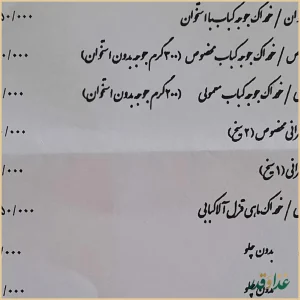 ان / خوراک جوجه کباب با استخوان ۵۰/۰۰۰
ص / خوراک جوجه کباب مخصوص (۳۰۰ گرم جوجه بدون استخوان) ۰/۰۰۰
ی / خوراک جوجه کباب معمولی (۲۰۰ گرم جوجه بدون استخوان) ۰/۰۰۰
رانی مخصوص (۲ سیخ) /۰۰۰
رانی (۱ سیخ) /۰۰۰
ی / خوراک ماهی قزل آلا کبابی ۵۰/۰۰۰
بدون چلو /۰۰۰
بدون چلو /۰۰۰